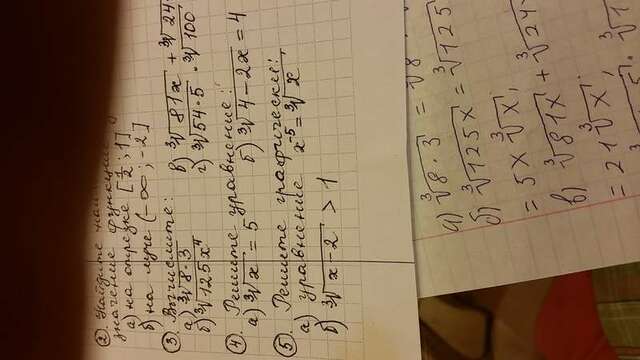 2. Найдите
значение функции
а) на отрезке [1/2; 1]
б) на луче (-∞; -2]
3. Вычислите:
а) ∛(8·3)
в) ∛(81x) + ∛24
б) ∛(125x⁴)
г) ∛(54·5) · ∛100
4. Решите уравнение:
а) ∛x = 5 б) ∛(4-2x) = 4
5. Решите графически:
а) уравнение x⁻⁵ = ∛x
б) ∛(x-2) > 1
а) ∛(8·3) = ∛8 ·
б) ∛(125x) = ∛125
= 5x ∛x;
в) ∛(81x) + ∛24
= 21 ∛x;